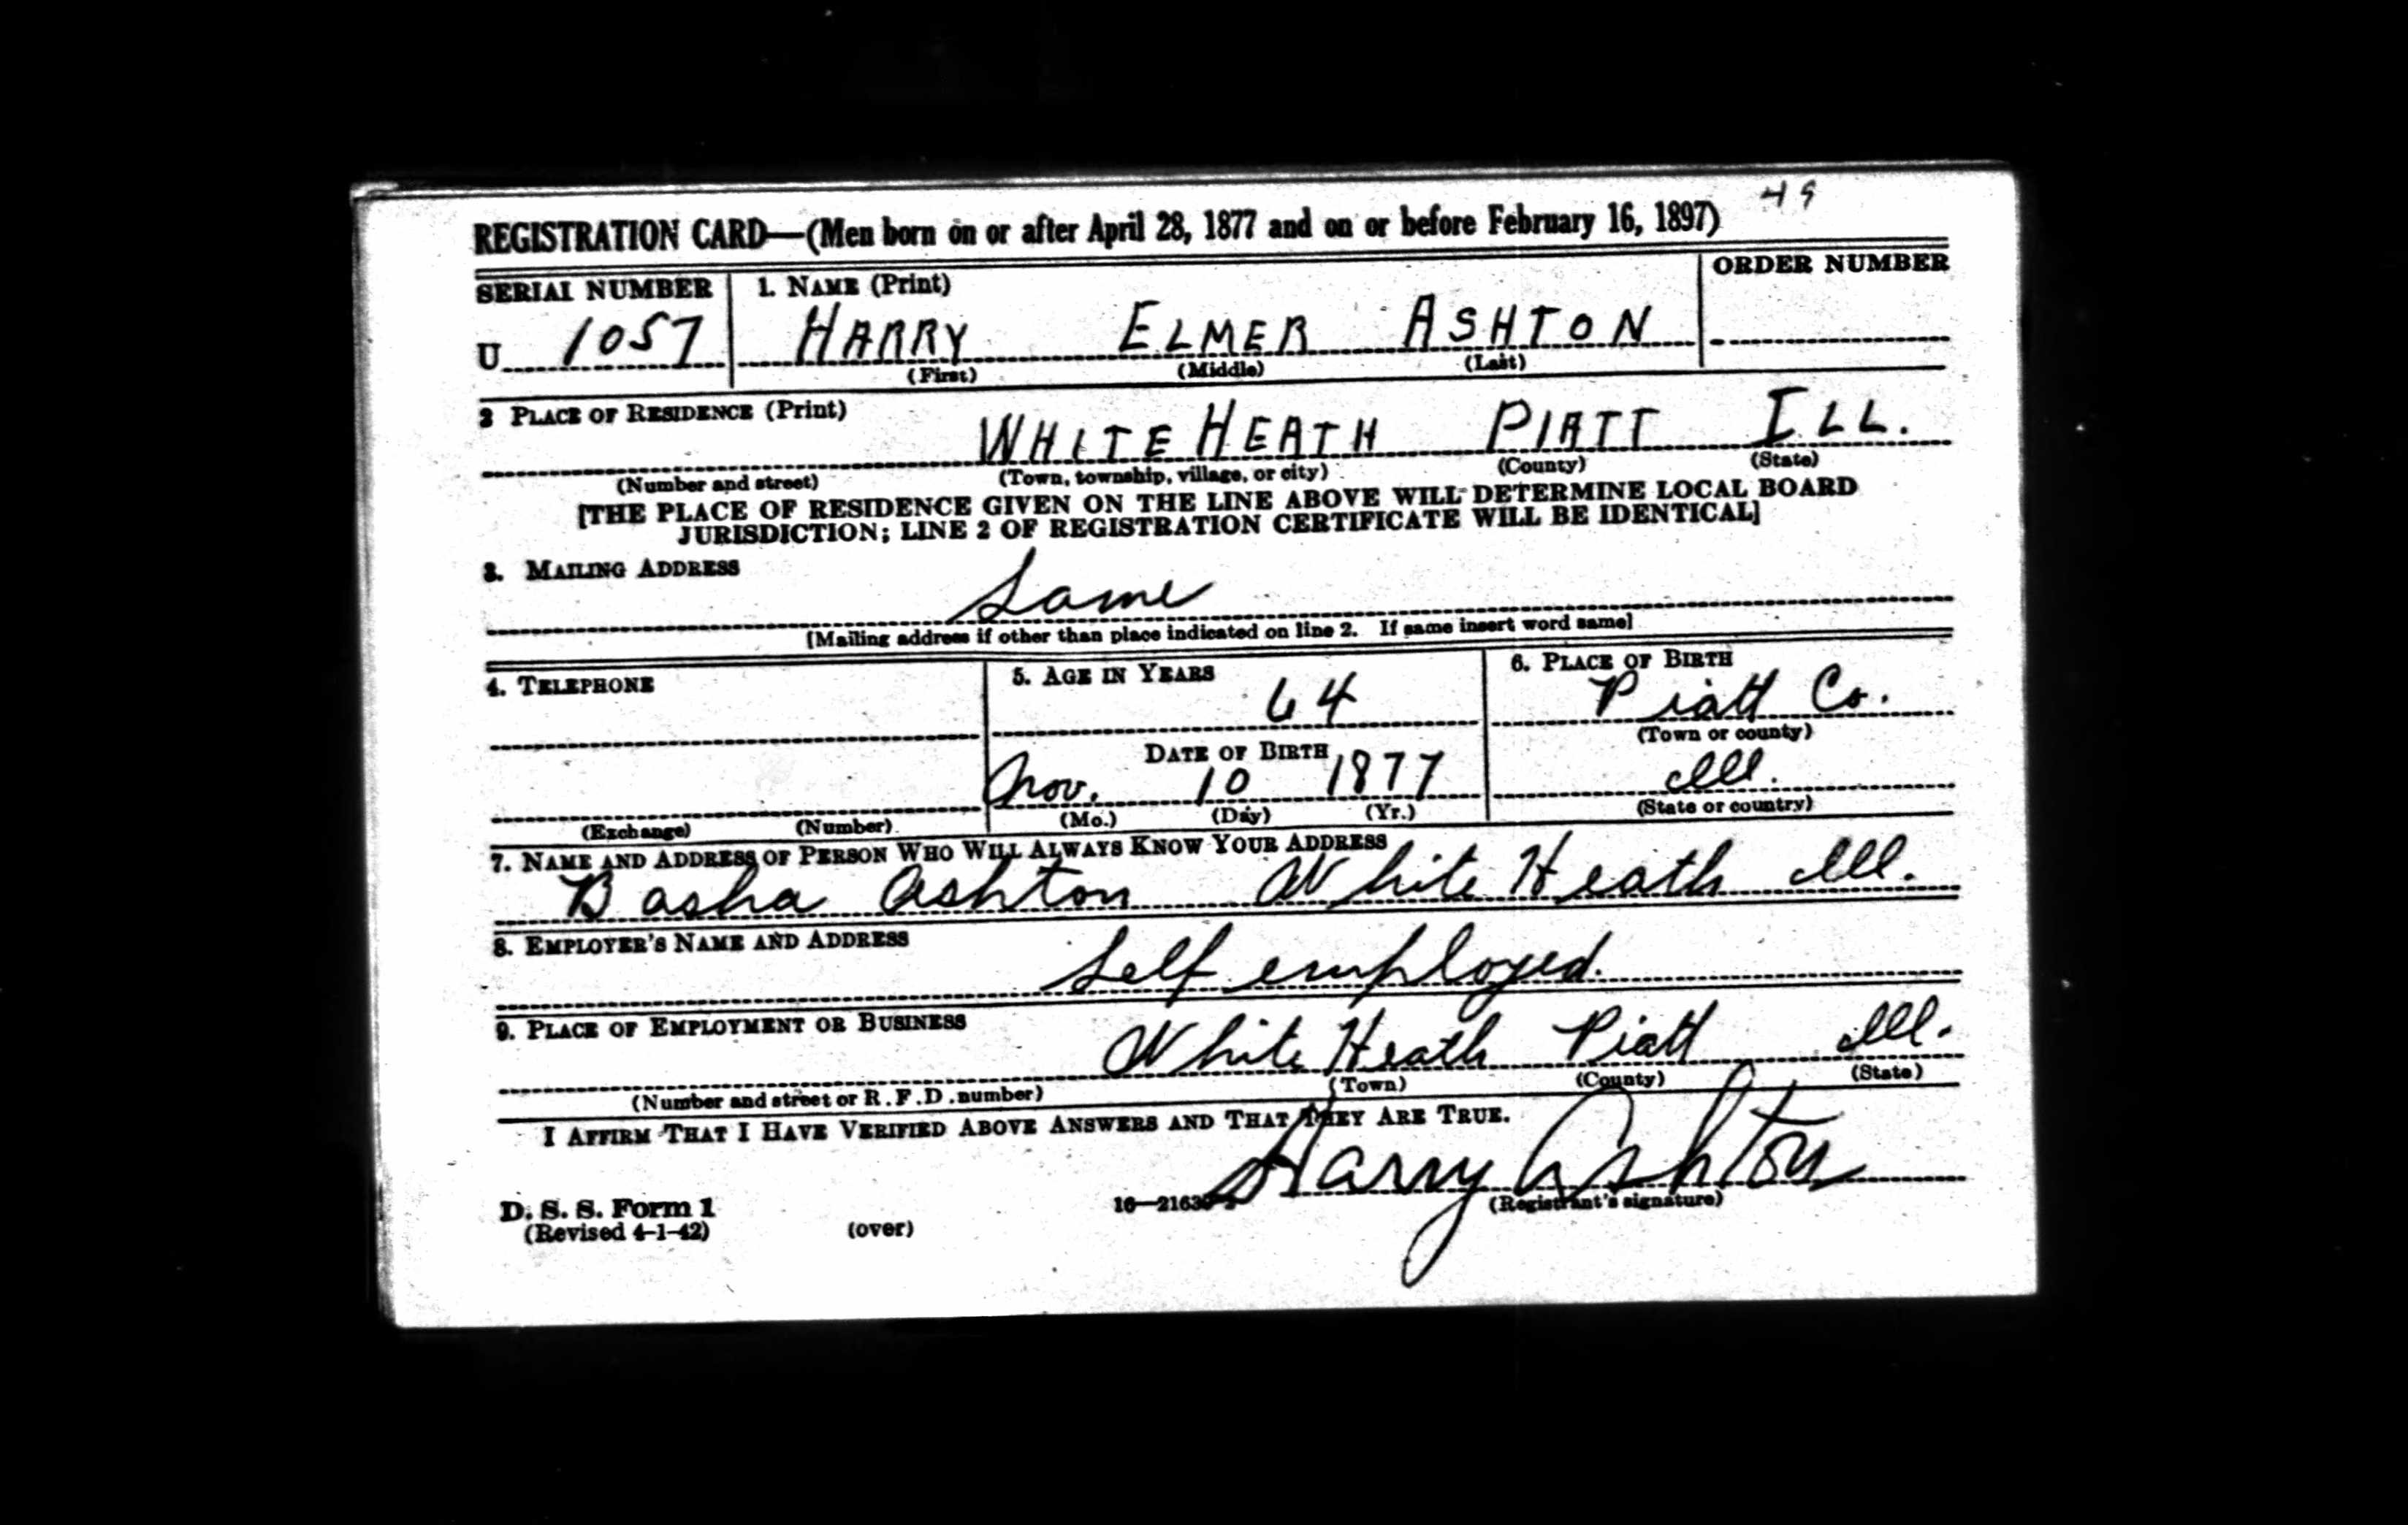 49
REGISTRATION CARD—(Men born on or after April 28, 1877 and on or before February 16, 1897)
SERIAL NUMBER 1. NAME (Print) ORDER NUMBER
U 1057 HARRY ELMER ASHTON
(First) (Middle) (Last)
2 PLACE OF RESIDENCE (Print)
WHITE HEATH PIATT ILL.
(Number and street) (Town, township, village, or city) (County) (State)
[THE PLACE OF RESIDENCE GIVEN ON THE LINE ABOVE WILL DETERMINE LOCAL BOARD
JURISDICTION; LINE 2 OF REGISTRATION CERTIFICATE WILL BE IDENTICAL]
3. MAILING ADDRESS
Same
[Mailing address if other than place indicated on line 2. If same insert word same]
4. TELEPHONE 5. AGE IN YEARS 6. PLACE OF BIRTH
64 Piatt Co.
(Town or county)
DATE OF BIRTH
Nov. 10 1877 Ill.
(Exchange) (Number) (Mo.) (Day) (Yr.) (State or country)
7. NAME AND ADDRESS OF PERSON WHO WILL ALWAYS KNOW YOUR ADDRESS
Basha Ashton White Heath Ill.
8. EMPLOYER'S NAME AND ADDRESS
Self employed.
9. PLACE OF EMPLOYMENT OR BUSINESS
White Heath Piatt Ill.
(Number and street or R. F. D. number) (Town) (County) (State)
I AFFIRM THAT I HAVE VERIFIED ABOVE ANSWERS AND THAT THEY ARE TRUE.
Harry Ashton
D. S. S. Form 1 (Registrant's signature)
(Revised 4-1-42) (over)